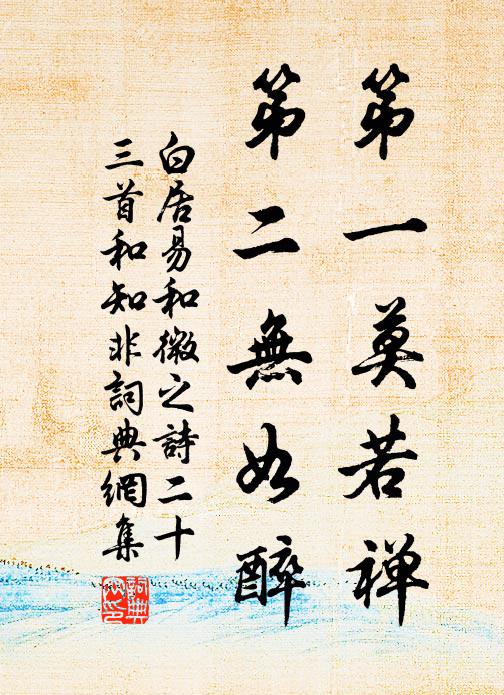 第一莫若禅
第二無如醉
白居易和微之詩二十
三首和知非詞典網集